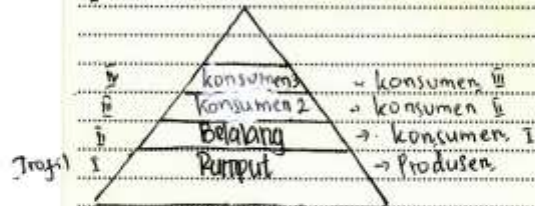 konsumen 3 → konsumen III
konsumen 2 → konsumen II
II Belalang → konsumen I
Trofi I Rumput → Produsen